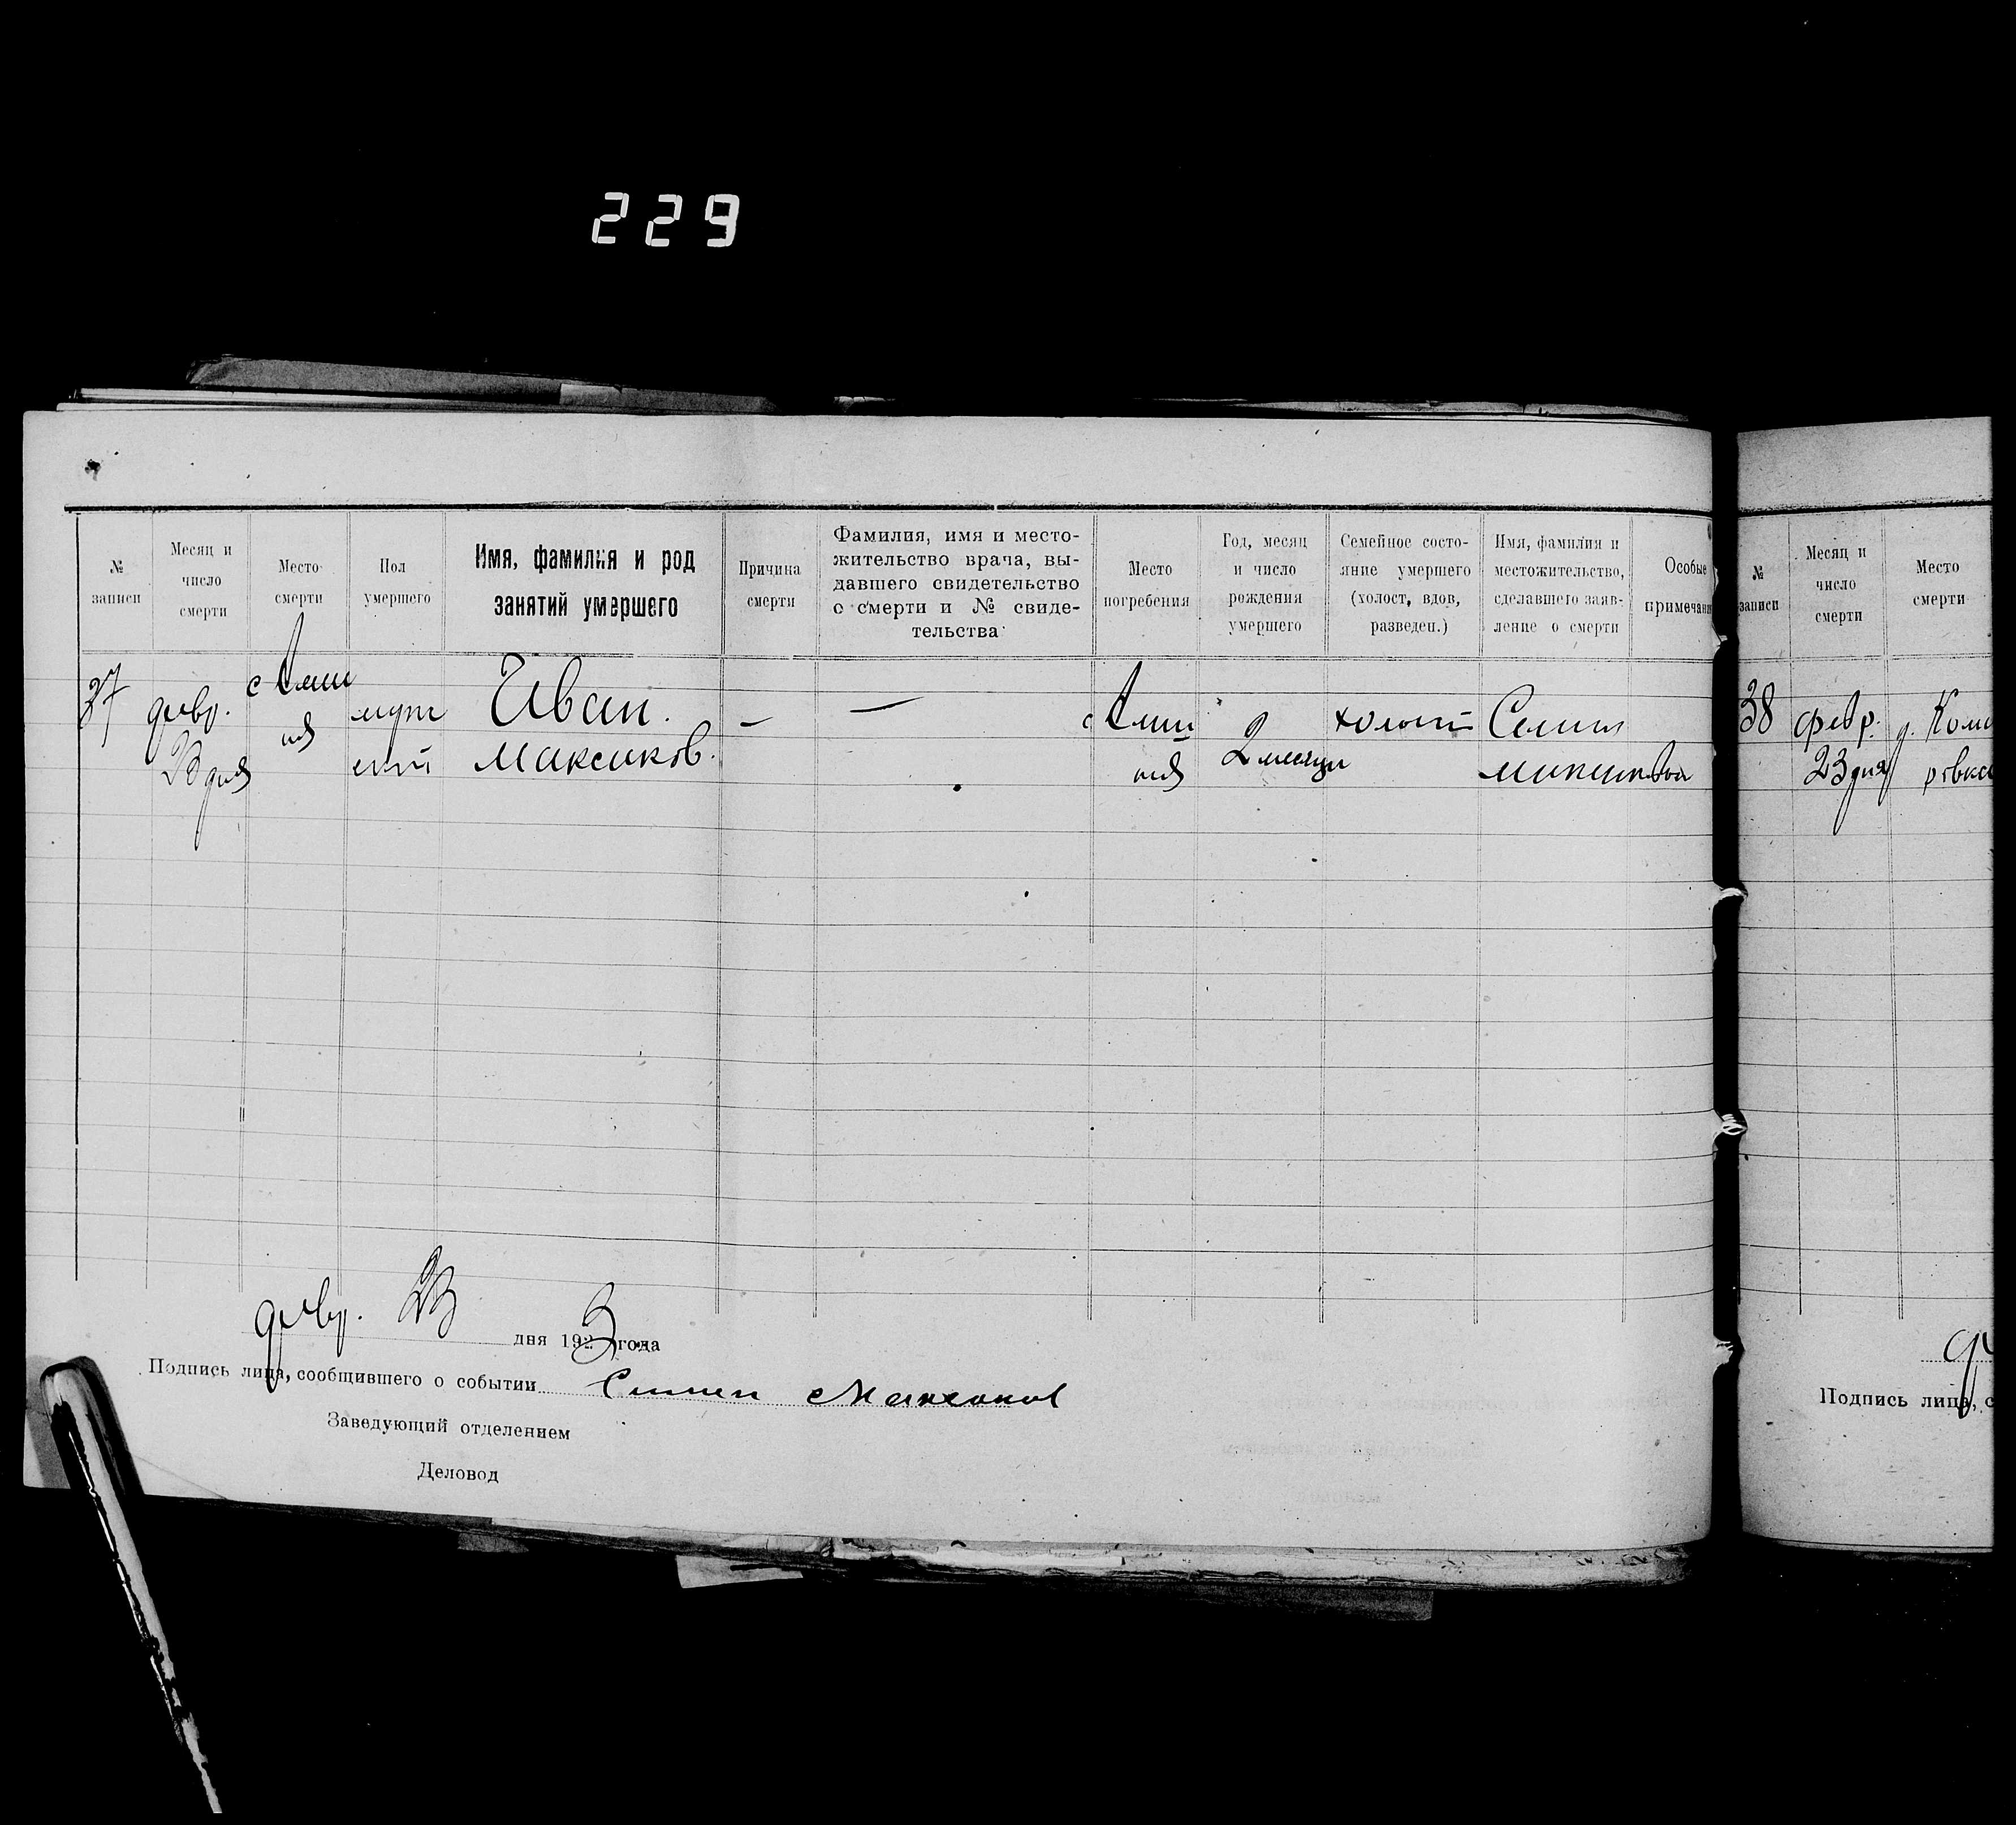 229
№
записи
Месяц и
число
смерти
Место
смерти
Пол
умершего
Имя, фамилия и род
занятий умершего
Причина
смерти
Фамилия, имя и место-
жительство врача, вы-
давшего свидетельство
о смерти и № свиде-
тельства
Место
погребения
Год, месяц
и число
рождения
умершего
Семейное состо-
яние умершего
(холост, вдов,
разведен.)
Имя, фамилия и
местожительство,
сделавшего заяв-
ление о смерти
Особые
примечани
37
февр.
23 дня
муж
ской
Иван.
Максиков.
—
—
2 месяца
холост
февр. 23 дня 1923 года
Подпись лица, сообщившего о событии
Заведующий отделением
Деловод
№
записи
Месяц и
число
смерти
Место
смерти
38
февр.
23 дня
д. Кома
ровка
Подпись лица, с